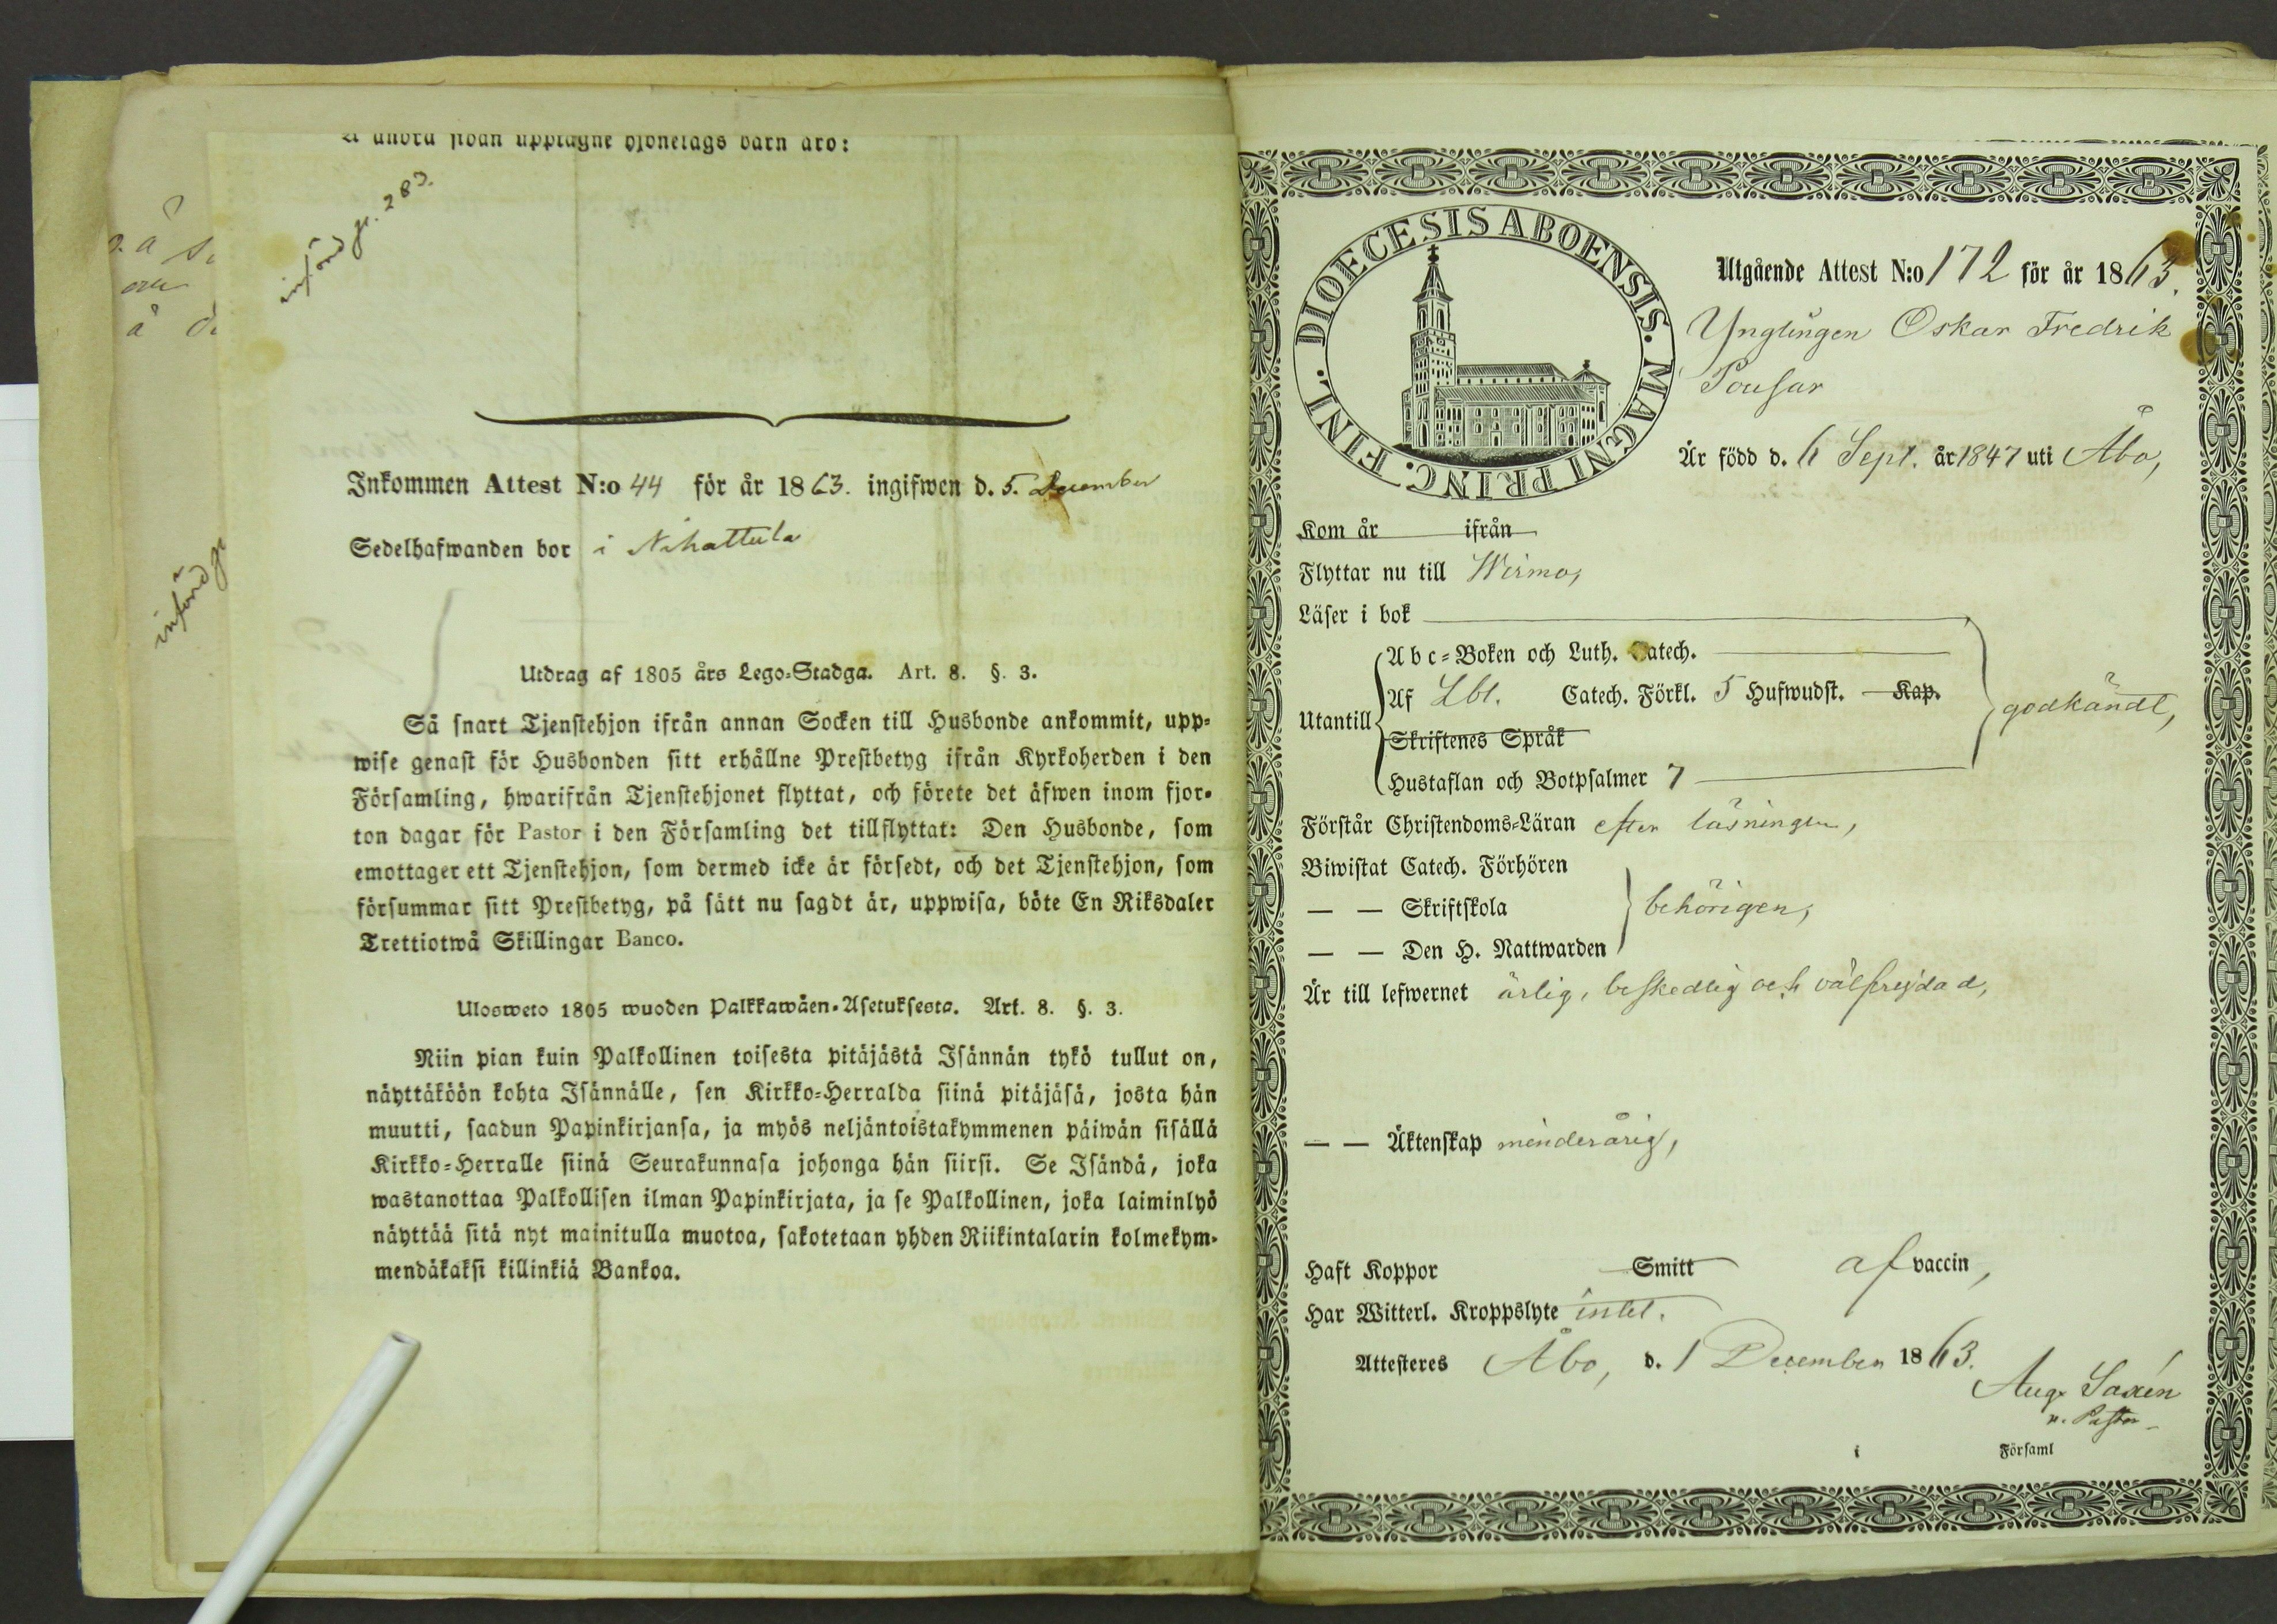 A andra sidan upptagne hjonelags barn äro:
införd p. 283.
Inkommen Attest N:o 44 för år 1863. ingifwen d. 5. December
Sedelhafwanden bor i Nihattula
införd p
Utdrag af 1805 års Lego-Stadga. Art. 8. §. 3.
Så snart Tjenstehjon ifrån annan Socken till Husbonde ankommit, upp-
wise genast för Husbonden sitt erhållne Prestbetyg ifrån Kyrkoherden i den
Församling, hwarifrån Tjenstehjonet flyttat, och förete det äfwen inom fjor-
ton dagar för Pastor i den Församling det tillflyttat: Den Husbonde, som
emottager ett Tjenstehjon, som dermed icke är försedt, och det Tjenstehjon, som
försummar sitt Prestbetyg, på sätt nu sagdt är, uppwisa, böte En Riksdaler
Trettiotwå Skillingar Banco.
Ulosweto 1805 wuoden Palkkawäen-Asetuksesta. Art. 8. §. 3.
Niin pian kuin Palkollinen toisesta pitäjästä Isännän tykö tullut on,
näyttäköön kohta Isännälle, sen Kirkko-Herralda siinä pitäjäsä, josta hän
muutti, saadun Papinkirjansa, ja myös neljäntoistakymmenen päiwän sisällä
Kirkko-Herralle siinä Seurakunnasa johonga hän siirsi. Se Isändä, joka
wastanottaa Palkollisen ilman Papinkirjata, ja se Palkollinen, joka laiminlyö
näyttää sitä nyt mainitulla muotoa, sakotetaan yhden Riikintalarin kolmekym-
mendäkaksi killinkiä Bankoa.
DIOECESIS ABOENSIS. MAGNI PRINC. FINL.
Utgående Attest N:o 172 för år 1863.
Ynglingen Oskar Fredrik
Pousar
Är född d. 6 Sept. år 1847 uti Åbo,
Kom år ifrån
Flyttar nu till Wirmo,
Läser i bok
Abc-Boken och Luth. Catech.
Utantill Af Lbl. Catech. Förkl. 5 Hufwudst. Kap. godkändt,
Skriftenes Språk
Hustaflan och Botpsalmer 7
Förstår Christendoms-Läran efter läsningen,
Biwistat Catech. Förhören
— — Skriftskola behörigen,
— — Den H. Nattwarden
Är till lefwernet ärlig, beskedlig och välfrejdad,
— — Äktenskap minderårig,
Haft Koppor Smitt af vaccin,
Har Witterl. Kroppslyte intet.
Attesteres Åbo, d. 1 December 1863.
Aug. Saxén
v. Pastor
i Församl